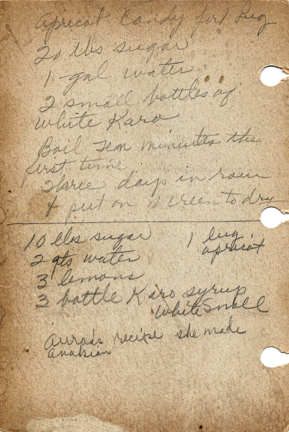 apricot Candy for 1 Lug
20 lbs sugar
1 gal water
2 small bottles of
white Karo
Boil Ten minutes the
first time
Three days in
& put on screen to dry
10 lbs sugar 1 lug
apricot
2 qts water
3 lemons
3 bottle Karo syrup
white small
recipe she made